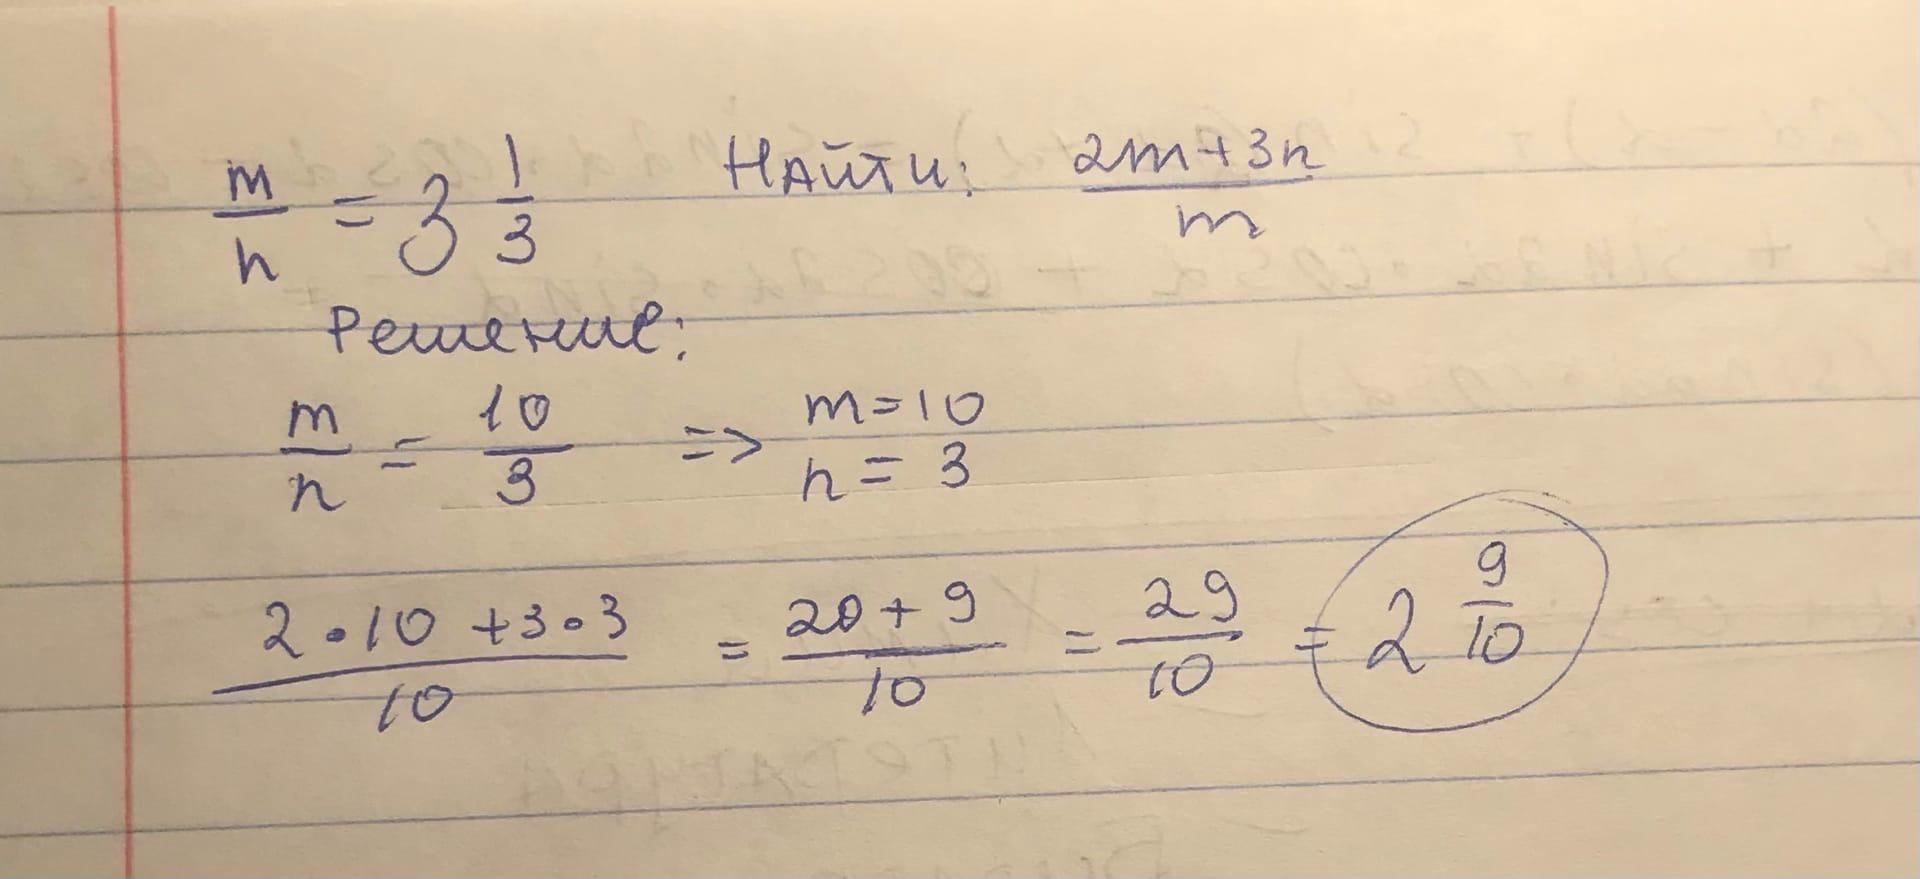 m/n = 3 1/3 Найти: (2m+3n)/m
Решение:
m/n = 10/3 => m=10 n=3
(2•10+3•3)/10 = (20+9)/10 = 29/10 = 2 9/10